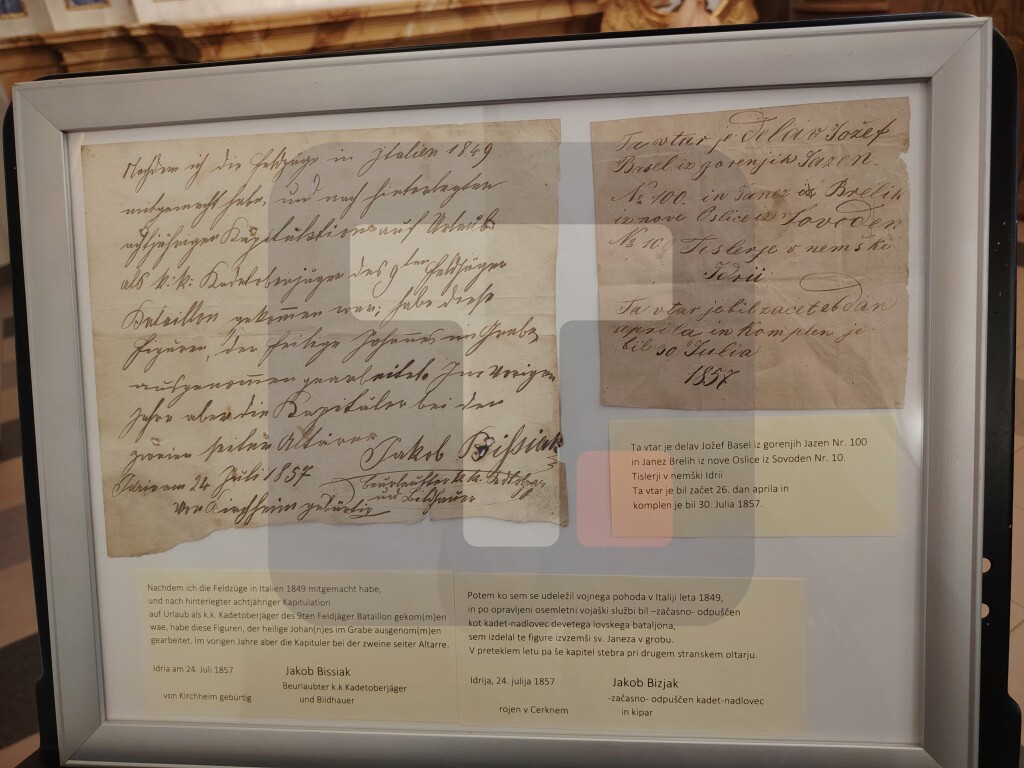 Nachdem ich die Feldzüge in Italien 1849
mitgemacht habe, und nach hinterlegten
achtjähriger Kapitulktion auf Urlaub
als k: k: Kadetoberjäger des 9ten Feldjäger
Bataillon gekommen war; habe diese
Figuren, der heilige Johannes im Grabe
ausgenommen gearbeitet. Im vorigen
Jahre aber die Kapitäler bei den
zweien seiten Altären
Jakob Bissiak
Idria am 24 Juli 1857
beurlaubter k.k.
und Bildhauer
von Kirchheim gebürtig
Ta vtar je delav Jožef
Basel iz gorenjih Jazen.
No 100. in Janez iz Brelih
iz nove Oslice iz Sovoden
No 10 Tislerje v nemski
Idrii
Ta vtar je bil zacet 26 dan
aprila in komplen je
bil 30 Julia
1857
Ta vtar je delav Jožef Basel iz gorenjih Jazen Nr. 100
in Janez Brelih iz nove Oslice iz Sovoden Nr. 10.
Tislerji v nemški Idrii
Ta vtar je bil začet 26. dan aprila in
komplen je bil 30. Julia 1857.
Nachdem ich die Feldzüge in Italien 1849 mitgemacht habe,
und nach hinterlegter achtjähriger Kapitulation
auf Urlaub als k.k. Kadetoberjäger des 9ten Feldjäger Bataillon gekom(m)en
wae, habe diese Figuren, der heilige Johan(n)es im Grabe ausgenom(m)en
gearbeitet. Im vorigen Jahre aber die Kapituler bei der zweine seiter Altarre.
Idria am 24. Juli 1857
Jakob Bissiak
Beurlaubter k.k Kadetoberjäger
von Kirchheim gebürtig
und Bildhauer
Potem ko sem se udeležil vojnega pohoda v Italiji leta 1849,
in po opravljeni osemletni vojaški službi bil –začasno- odpuščen
kot kadet-nadlovec devetega lovskega bataljona,
sem izdelal te figure izvzemši sv. Janeza v grobu.
V preteklem letu pa še kapitel stebra pri drugem stranskem oltarju.
Idrija, 24. julija 1857
Jakob Bizjak
-začasno- odpuščen kadet-nadlovec
rojen v Cerknem
in kipar